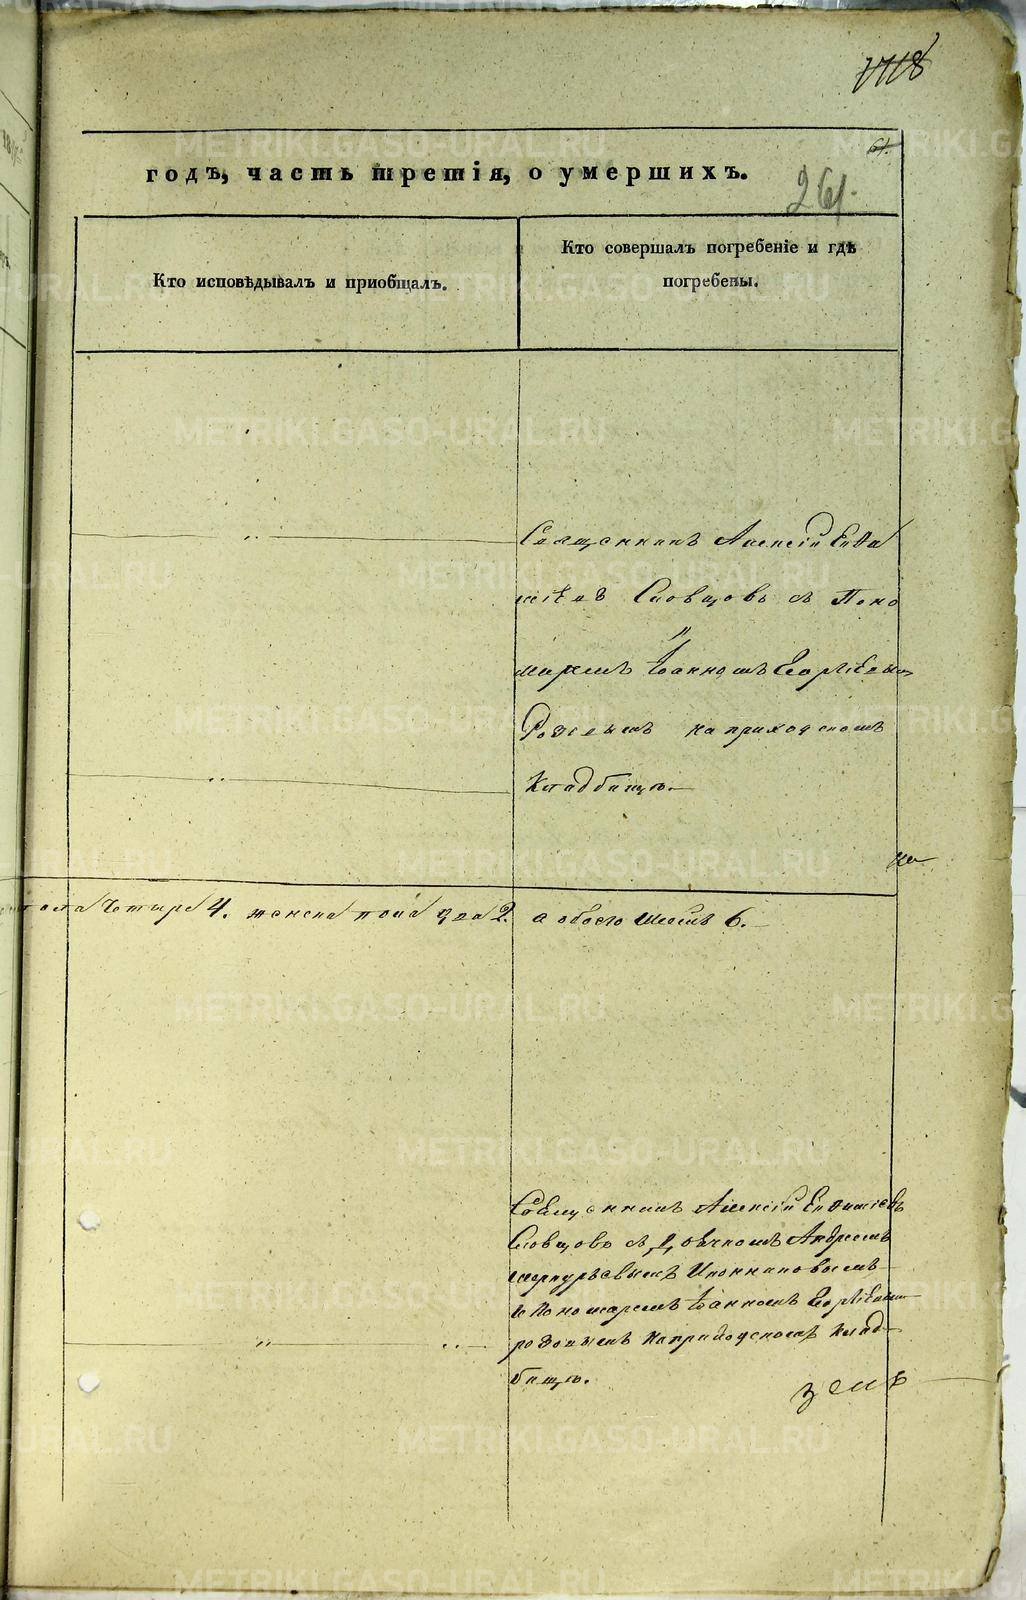 1118
61.
годъ, часть третія, о умершихъ.
261.
Кто исповѣдывалъ и приобщалъ.
Кто совершалъ погребеніе и гдѣ
погребены.
Священникъ Алексій Евѳи
міевъ Словцовъ съ Поно
маремъ Іоанномъ Георгіевым
Родіевымъ на приходскомъ
Кладбищѣ.
пола четыре 4. женска пола два 2. а обоего шесть 6.
Священникъ Алексій Евѳиміевъ
Словцовъ съ Дьячкомъ Андреемъ
Меркурьевымъ Иконниковымъ
и Пономаремъ Іоанномъ Георгіевым
на приходскомъ клад
бищѣ.
METRIKI.GASO-URAL.RU